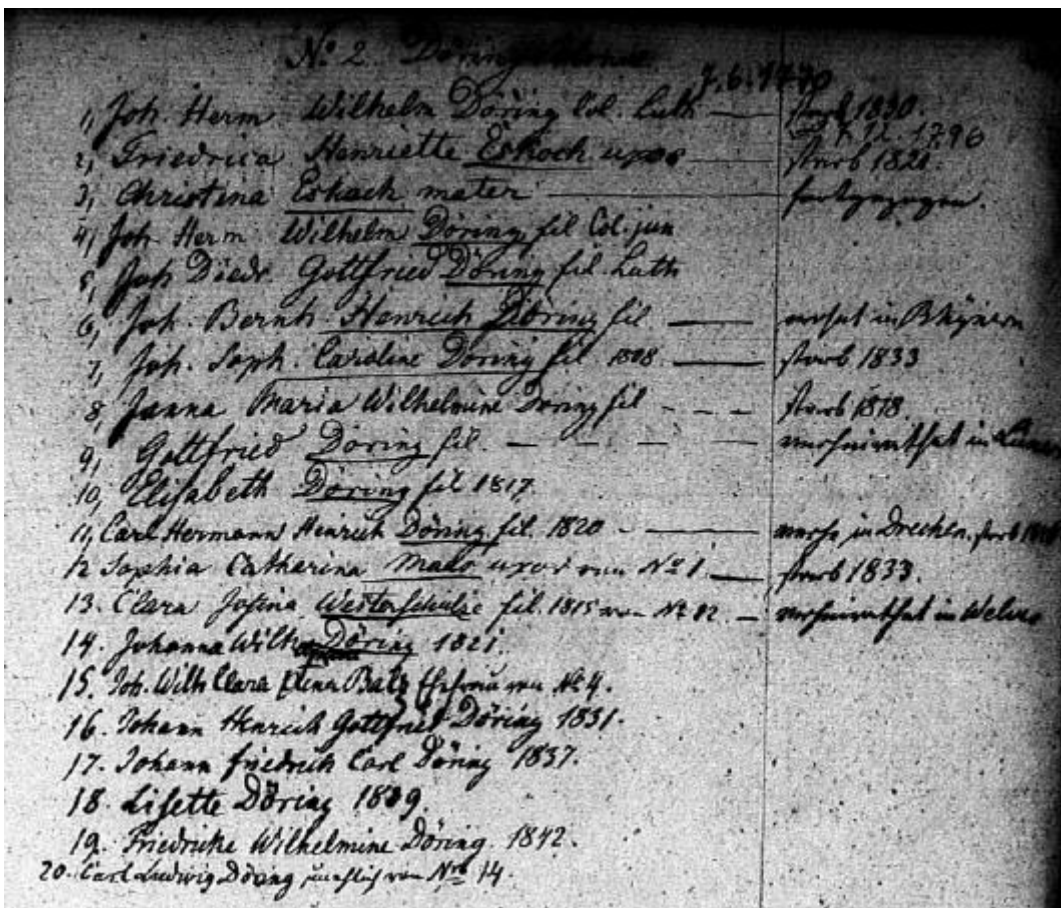 No 2. Döring
7.6.1770
1, Joh. Herm. Wilhelm Döring Col. Luth — starb 1830.
1796
2, Friedrica Henriette Eskoch uxor — starb 1820.
3, Christina Eskoch mater — fortgezogen.
4, Joh. Herm. Wilhelm Döring fil Col. jun
5, Joh Diedr. Gottfried Döring fil. Luth
6, Joh. Bernh. Henrich Döring fil — in Rhynern
7, Joh. Soph. Caroline Döring fil 1808. — starb 1833
8, Janna Maria Wilhelmine Döring fil - - - starb 1818.
9, Gottfried Döring fil. - - - - verheirathet in
10, Elisabeth Döring fil 1817.
11, Carl Hermann Heinrich Döring fil. 1820 - — in Drechen. starb
12 Sophia Catharina uxor von No 1. — starb 1833.
13. Clara Josina Westerschulze fil. 1815 von No 12. — verheirathet in Welver
14. Johanna Wilh. Döring 1821.
15. Joh. Wilh Clara Ehefrau von No 4.
16. Johann Henrich Gottfried Döring 1831.
17. Johann Friedrich Carl Döring 1837.
18. Lisette Döring 1839.
19. Friedricke Wilhelmine Döring. 1842.
20. Carl Ludwig Döring unehlich von Nro 14.